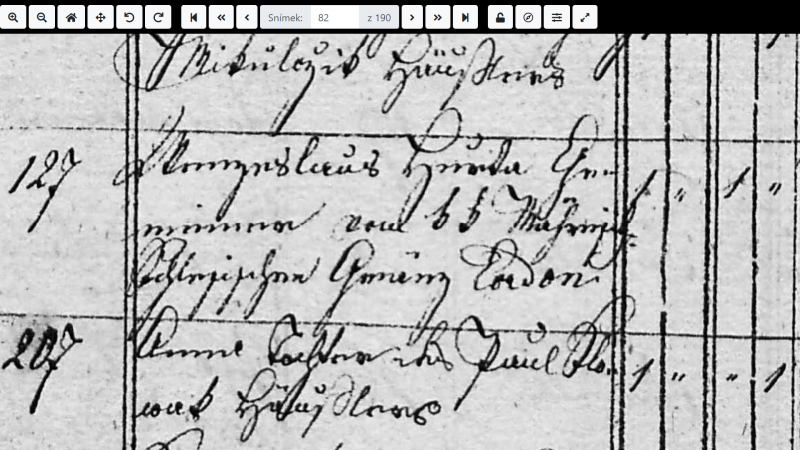 Snímek: 82 z 190
Mikulczik Häuslers
127 Wenzeslaus Hurda Ge- 1 " 1 "
meiner vom k k Mährisch-
Schlesischen Gränz Cordon
207 Anna Tochter des Paul Slo- 1 " " 1
wak Häuslers